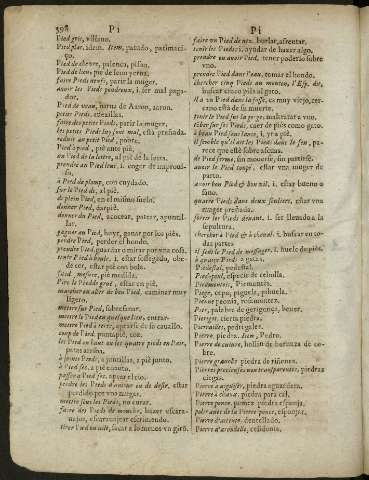 398 Pi
Pied gris, villano.
Pied plat, idem. Item, patudo, patimaci-
ço.
Pied de chevre, palenca, pisan.
Pied de lion, pie de leon yerva.
faire Pieds neufs, parir la muger.
avoir les Pieds poudreux, i. ser mal paga-
dor.
Pied de veau, yaros de Aaron, aaron.
petits Pieds, cercillas.
faire des petits Pieds, parir la muger.
les petits Pieds luy font mal, esta preñada.
reduire au petit Pied, pobre.
Pied à pied, pie ante pie.
au Pied de la lettre, al piè de la letra.
prendre au Pied levé, i. coger de improui-
so.
à Pied de plomb, con cuydado.
sur le Pied de, al piè.
de plein Pied, en el mismo suelo.
donner Pied, dar piè.
donner du Pied, acocear, patear, apuntil-
lar.
gagner au Pied, huyr, ganar por los piès.
perdre Pied, perder el hondo.
prendre Pied, guardar o mirar por una cosa.
tenir Pied à boule, i. estar sossegado, obe-
decer, estar piè con bola.
Pied, mesure, piè medida.
Pied, estar en piè.
marcher ou aller de bon Pied, caminar muy
ligero.
mettre sur Pied, sobrefanar.
mettre le Pied en quelque lieu, entrar.
mettre Pied à terre, apearse de su cavallo.
coup de Pied, puntapiè, coz.
les Pied ou lieux ou les quatre pieds en l'air,
patas arriba.
à pieds joints, a juntillas, a piè junto.
à Pied sec, a piè enxuto.
passer à Pied sec, apear el rio.
perdre les Pieds d'amour ou de desir, estar
perdido por una muger.
mettre sous les Pieds, no curar.
faire des Pieds de mouche, hazer escara-
uajos, escarauajear escriuiendo.
Pi
faire un Pied de nez, burlar, afrentar.
tenir les Pieds à, ayudar de hazer algo.
prendre un avoir Pied, tener poderio sobre
uno.
prendre Pied dans l'eau, tomar el hondo.
chercher cinq Pieds au mouton, l'Esp. dit,
buscar cinco piès al gato.
il a un Pied dans la fosse, es muy viejo, cer-
cano està de su muerte.
tomber sur ses Pieds, caer de piès como gato.
à beau Pied sans lance, i. yr a piè.
il semble qu'il ait les Pieds dans le feu, pa-
rece que estè sobre ascuas.
de Pied ferme, sin mouerse, sin partirse.
avoir le Pied coupé, estar una muger de
parto.
avoir bon Pied & bon œil, i. estar bueno o
sano.
quatre Pieds dans deux souliers, estar una
muger preñada.
porter les Pieds devant, i. ser llevado a la
sepoltura.
chercher à Pied & à cheval, i. buscar en to-
das partes
il sent le Pied de messager, i. huele de piès.
à quatre Pieds, a gatas.
Piedestal, pedestal.
Pied-pont, especie de cebolla.
Piedmontois, Piemontes.
Piege, cepo, piguela, pihuela.
Pieune peonia, rosa montes.
Pier, palabra de gerigonça, bever.
Pierge, cierta piedra.
Pierraille, pedregales.
Pierre, piedra. Item, Pedro.
Pierre de cuivre, hollin de burinza de co-
bre.
Pierre gravelle, piedra de riñones.
Pierres precieuses non transparentes, piedras
ciegas.
Pierre à aiguiser, piedra aguzadera.
Pierre à chaux, piedra para cal.
Pierre ponce, pomez piedra esponja.
polir avec de la Pierre ponce, esponjar.
Pierre d'attente, dentellado.
Pierre d'arondelle, celidonia.